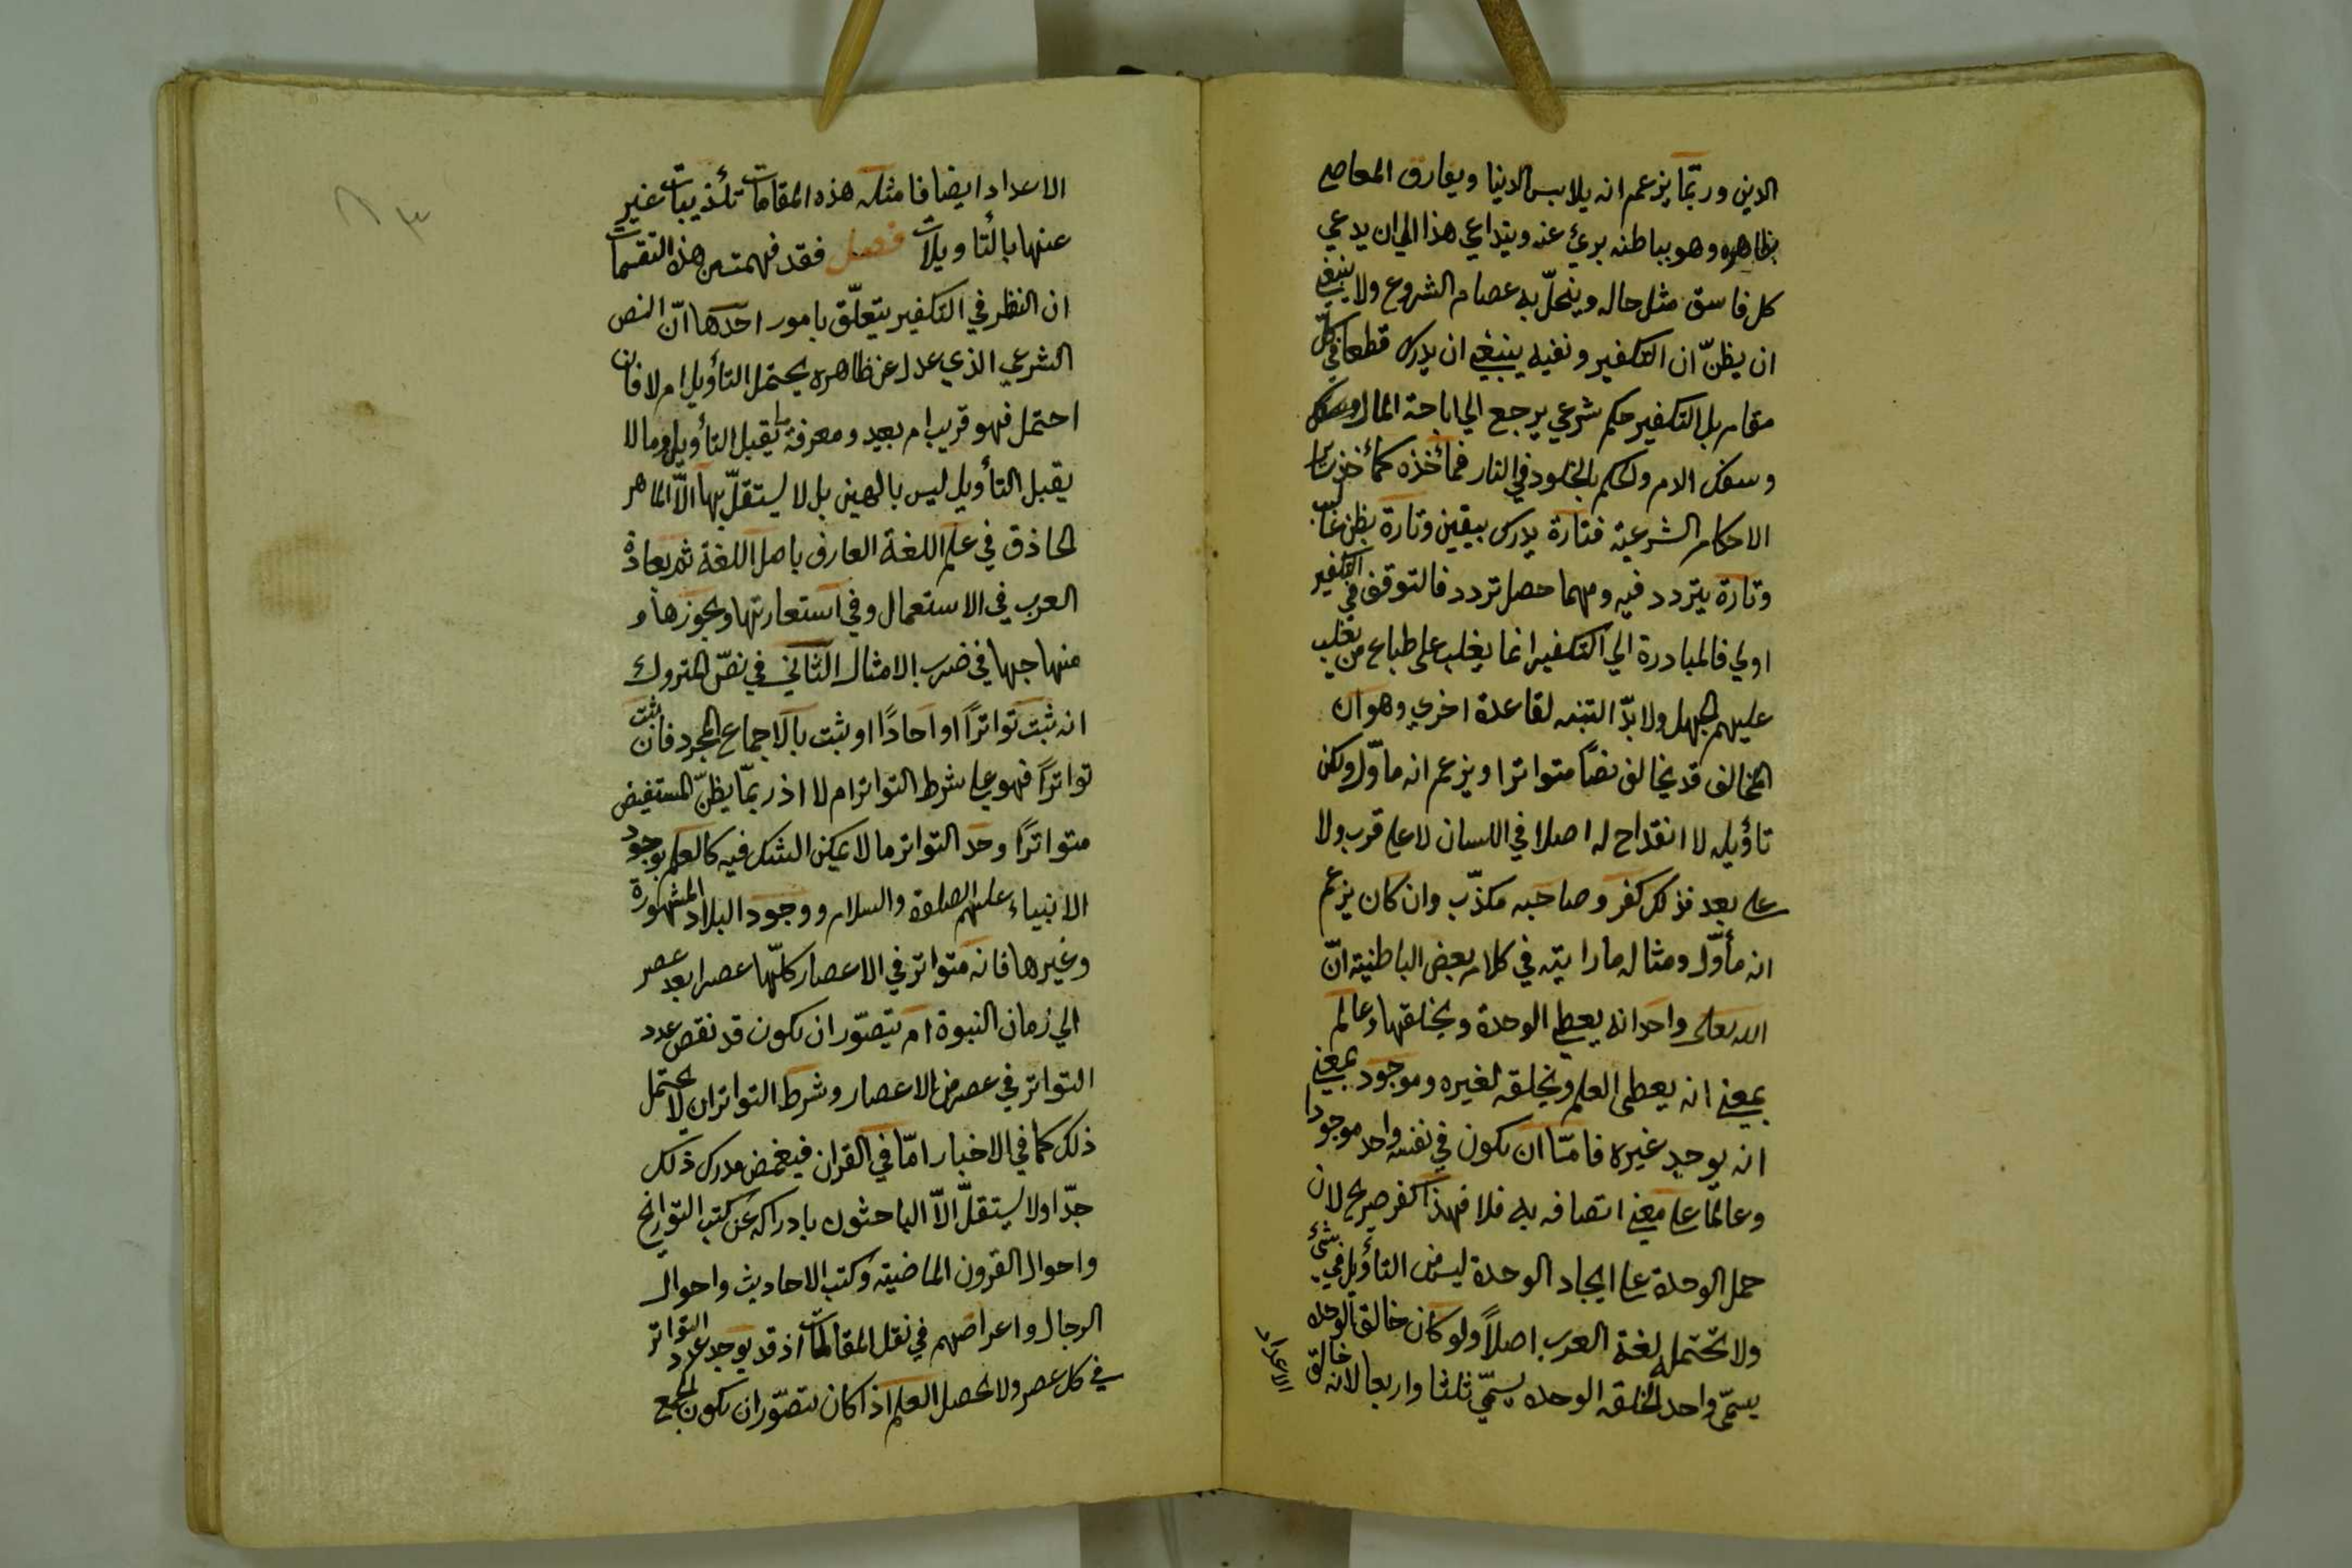 الدين وربّما يزعم انه يلابس الدنيا ويفارق المعاصي
بظاهره وهو بباطنه برئ عنه ويتداعي هذا الي ان يدعي
كل فاسق مثل حاله وينحلّ به عصام الشروع ولا ينبغي
ان يظنّ ان التكفير ونفيه ينبغي ان يدرك قطعا في كلّ
مقام بل التكفير حكم شرعي يرجع الي اباحة المال
وسفك الدم والحكم بالخلود في النار فمأخذه كمأخذ سائر
الاحكام الشرعية فتارة يدرك بيقين وتارة بظن غالب
وتارة يتردد فيه ومهما حصل تردد فالتوقف في التكفير
اولي فالمبادرة الي التكفير انما يغلب علي طباع من يغلب
عليهم الجهل ولا بدّ التنبه لقاعدة اخري وهو ان
المخالف قد يخالف نصّا متواترا ويزعم انه مأوّل ولكن
تأويله لا انقداح له اصلا في اللسان لا علي قرب ولا
علي بعد فذلك كفر وصاحبه مكذّب وان كان يزعم
انه مأوّل ومثاله ما رايته في كلام بعض الباطنية انّ
الله تعالي واحد انه يعطي الوحدة ويخلقها وعالم
بمعني انه يعطي العلم ويخلقه لغيره وموجود بمعني
انه يوجد غيره فامّا ان يكون في نفسه واحد موجودا
وعالمّا علي معني اتصافه به فلا فهذا كفر صريح لان
حمل الوحدة علي ايجاد الوحدة ليس من التأويل في شئ
ولا تحتمله لغة العرب اصلاً ولو كان خالق الوحده
يسمّي واحد لخلقه الوحده يسمّي ثلثا واربعا لانه خالق
الاعداد
الاعداد ايضا فامثله هذه المقامات تكذيبات غير
عنها بالتأويلات فصل فقد فهمت من هذه التقسمات
ان النظر في التكفير يتعلّق بامور احدها انّ النص
الشرعي الذي عدل عن ظاهره يحتمل التأويل ام لا فان
احتمل فهو قريب ام بعيد ومعرفة ما يقبل التأويل وما لا
يقبل التأويل ليس بالهين بل لا يستقلّ بها الّا الماهر
الحاذق في علم اللغة العارف باصل اللغة ثم بعادة
العرب في الاستعمال وفي استعارتها وتجوزها و
منهاجها في ضرب الامثال الثاني في نصّ المتروك
انه ثبت تواتراً او احادًا او ثبت بالاجماع المجرد فان ثبت
تواتراً فهو علي شرط التواتر ام لا اذ ربّما يظنّ المستفيض
متواتراً وحد التواتر ما لا يمكن الشك فيه كالعلم بوجود
الانبياء عليهم الصلوة والسلام ووجود البلاد المشهورة
وغيرها فانه متواتر في الاعصار كلّها عصرا بعد عصر
الي زمان النبوة ام يتصوّر ان يكون قد نقص عدد
التواتر في عصر من الاعصار وشرط التواتر ان لا يحتمل
ذلك كما في الاخبار امّا في القران فيغمض مدرك ذلك
جدّا ولا يستقلّ الّا الباحثون بادراكه عن كتب التواريخ
واحوال القرون الماضية وكتب الاحاديث واحوال
الرجال واعراضهم في نقل المقالات اذ قد يوجد عدد التواتر
في كل عصر ولا يحصل العلم اذا كان يتصوّر ان يكون للجمع